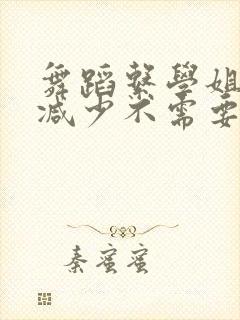 舞蹈繫學姐
减少不需要
秦蜜蜜